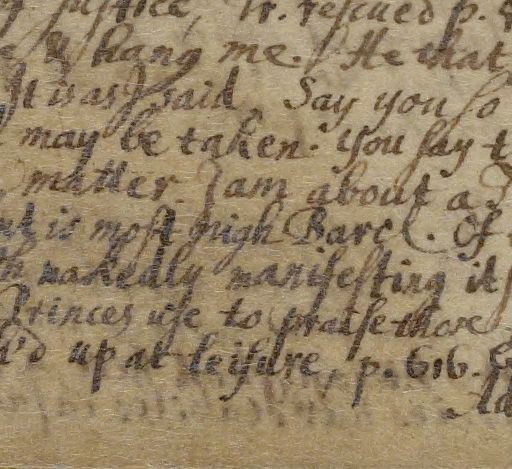 Justice, Tr. rescued p.
& hang me. He that
It was I said, Say you so
may be taken. you say t
matter. I am about a
is most nigh Barcl. Of
nakedly manifesting it
Princes use to praise those
'd up at leisure, p. 616.